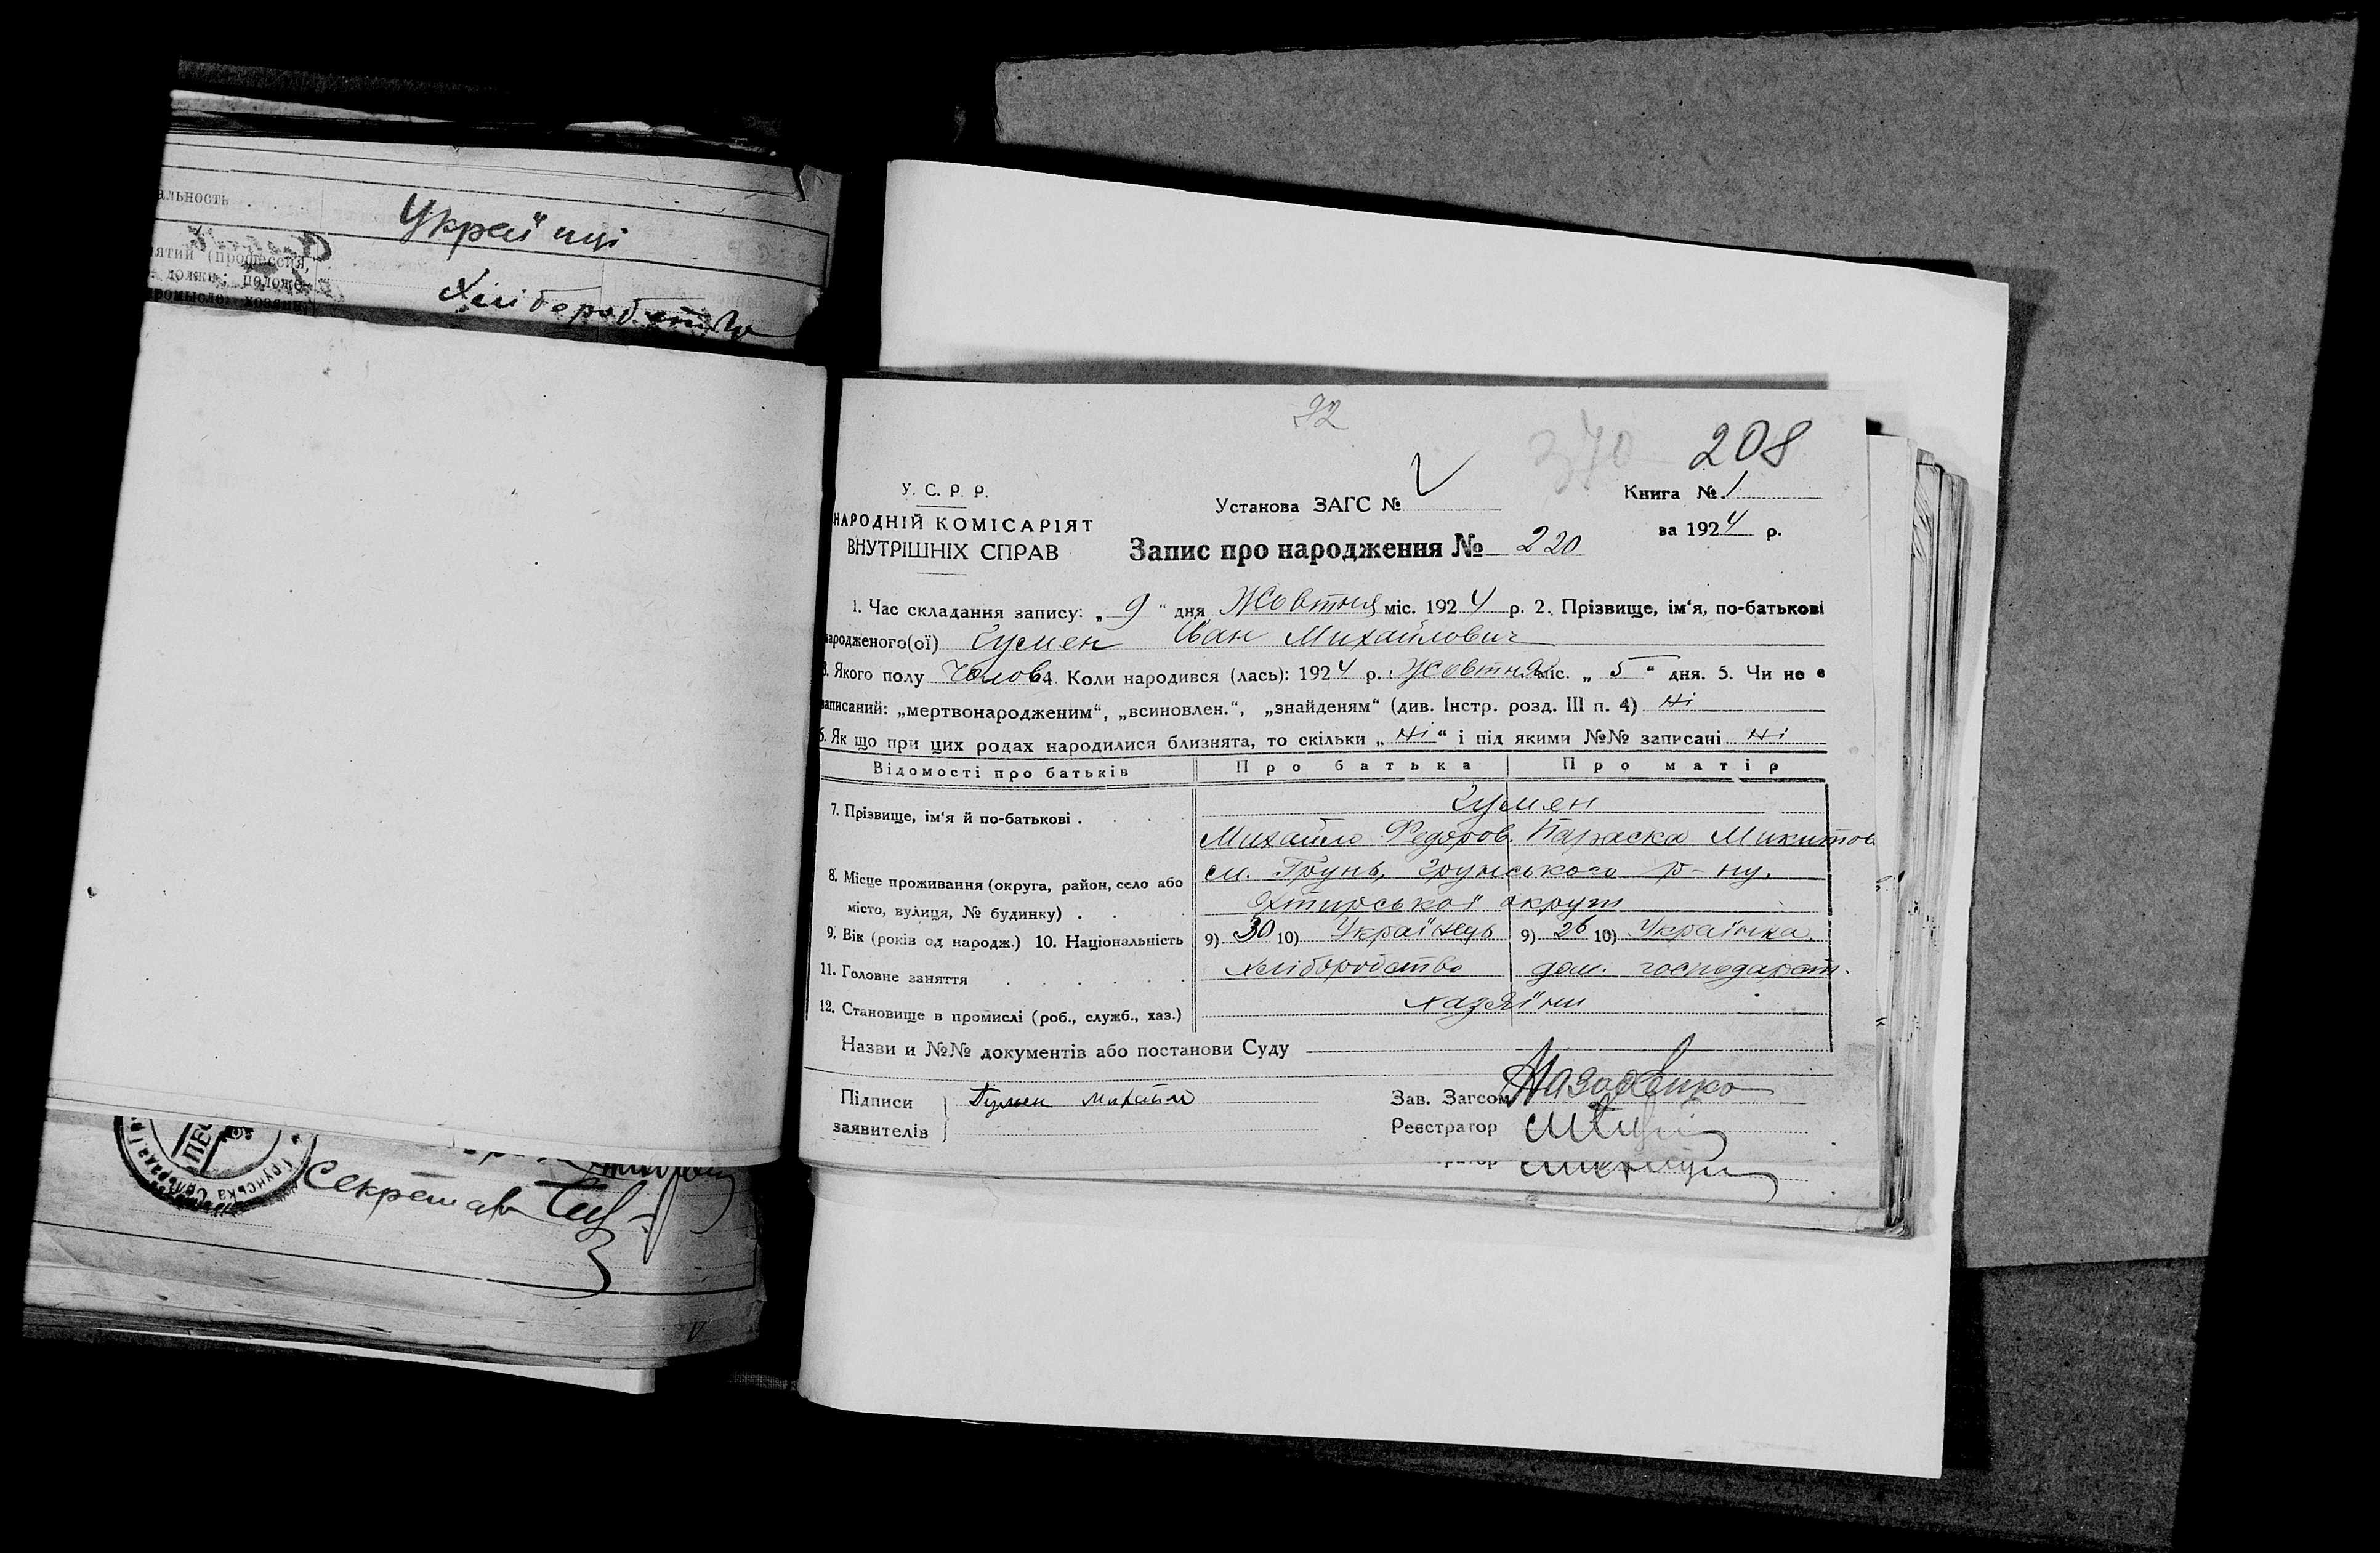 альность . . . Українці
нятий (профессия,
должн.; полож
Хліборобство
промысле: хозяин,
Секретар
92
370 208
У. С. Р. Р.
Установа ЗАГС №
Книга № 1
НАРОДНІЙ КОМІСАРІЯТ
ВНУТРІШНІХ СПРАВ
за 1924 р.
Запис про народження № 220
1. Час складання запису: „ 9 “ дня Жовтня міс. 1924 р. 2. Прізвище, ім‘я, по-батькові
народженого(ої) Гумен Іван Михайлович
3. Якого полу Чолов 4. Коли народився (лась): 1924 р. Жовтня міс. „ 5 “ дня. 5. Чи не є
записаний: „мертвонародженим“, „всиновлен.“, „знайденям“ (див. Інстр. розд. III п. 4) Ні
6. Як що при цих родах народилися близнята, то скільки „ Ні “ і під якими №№ записані Ні
Відомості про батьків Про батька Про матір
Гумен
7. Прізвище, ім‘я й по-батькові .
Михайло Федоров. Параска Микитов.
8. Місце проживання (округа, район, село або
см. Грунь, Грунського р-ну,
місто, вулиця, № будинку) .
Охтирської округи
9. Вік (років од народж.) 10. Національність 9) 30 10) Українець 9) 26 10) Українка.
11. Головне заняття . . . . . . Хліборобство дом. господарст.
12. Становище в промислі (роб., служб., хаз.) хазяїни
Назви и №№ документів або постанови Суду
Підписи
заявителів
Гумен Михайло
Зав. Загсом
Реєстратор